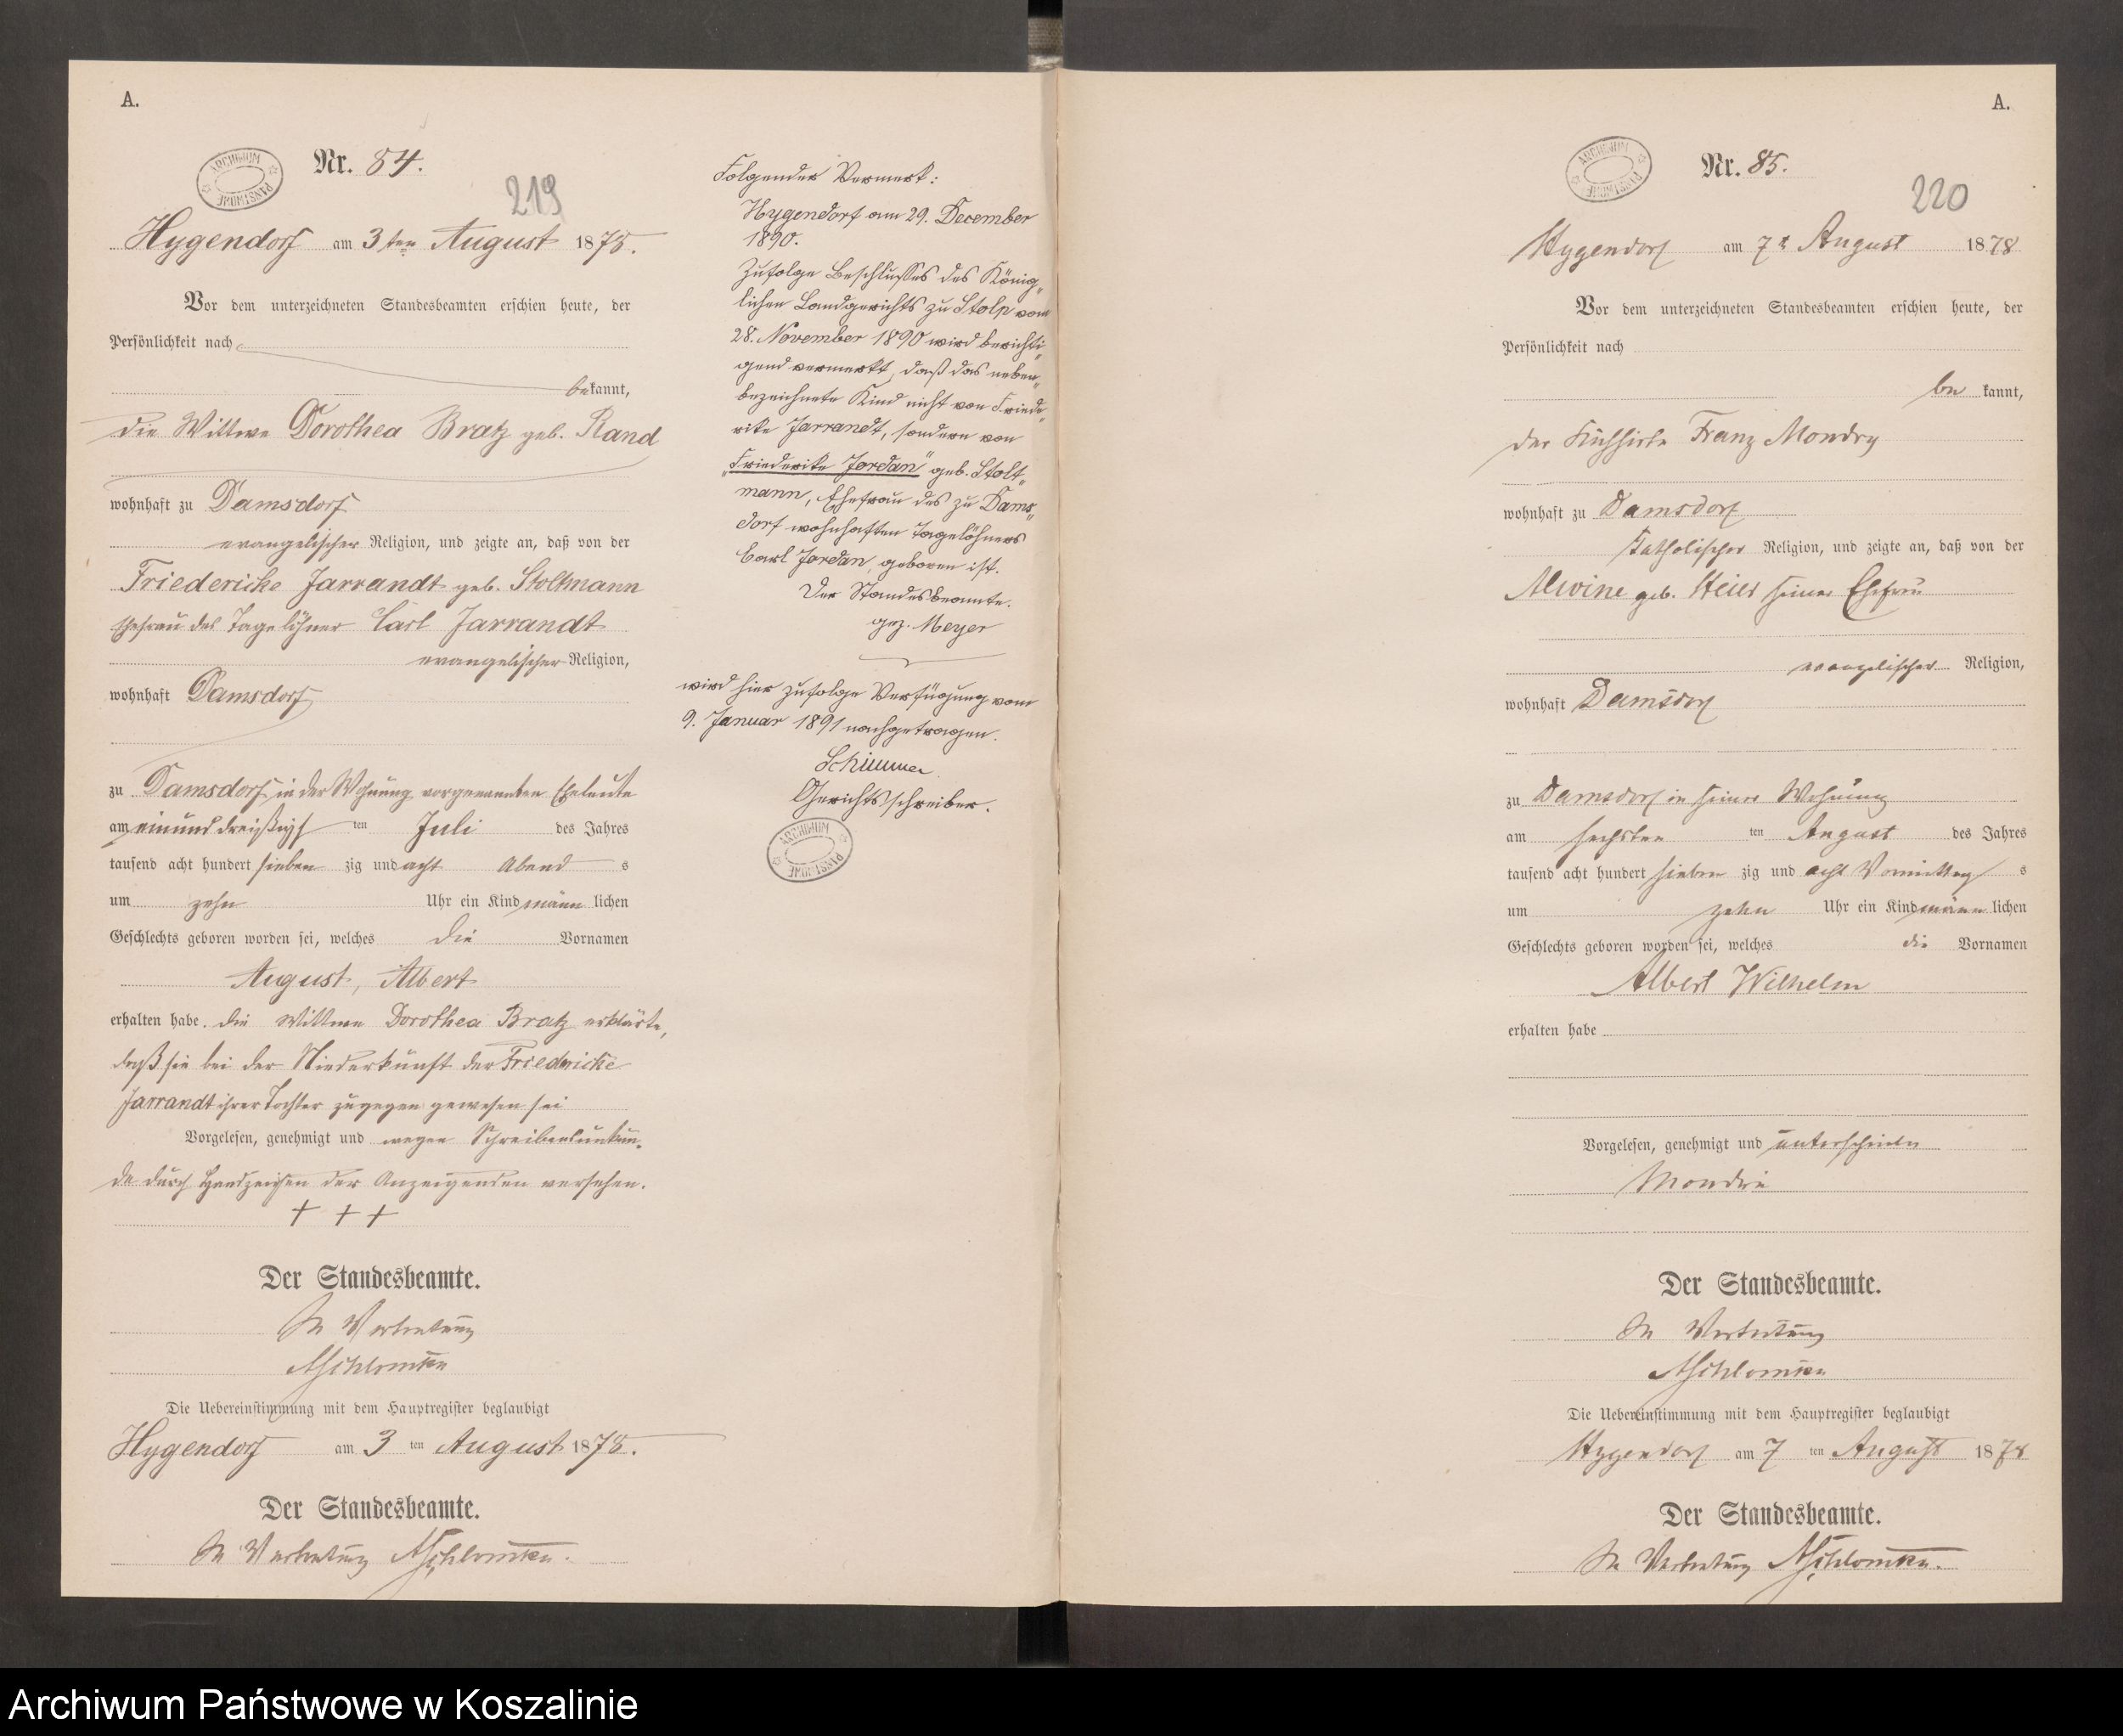 A.
Nr. 84.
219
Hygendorf am 3ten August 1878.
Vor dem unterzeichneten Standesbeamten erschien heute, der
Persönlichkeit nach
bekannt,
die Wittwe Dorothea Bratz geb. Rand
wohnhaft zu Damsdorf
evangelischer Religion, und zeigte an, daß von der
Friedericke Jarrandt geb. Stoltmann
Ehefrau des Tagelöhner Carl Jarrandt
evangelischer Religion,
wohnhaft Damsdorf
zu Damsdorf in der Wohnung vorgenannten Eheleute
am einund dreißigst ten Juli des Jahres
tausend acht hundert sieben zig und acht Abend s
um zehn Uhr ein Kind männ lichen
Geschlechts geboren worden sei, welches die Vornamen
August, Albert
erhalten habe. die Wittwe Dorothea Bratz erklärte,
daß sie bei der Niederkunft der Friedericke
Jarrandt ihrer Tochter zugegen gewesen sei
Vorgelesen, genehmigt und wegen Schreibensunkun-
de durch Handzeichen der Anzeigenden versehen.
+ + +
Der Standesbeamte.
In Vertretung
Die Uebereinstimmung mit dem Hauptregister beglaubigt
Hygendorf am 3 ten August 1878.
Der Standesbeamte.
In Vertretung
Folgender Vermerk:
Hygendorf am 29. December
1890.
Zufolge Beschlusses des König-
lichen Landgerichts zu Stolp vom
28. November 1890 wird berichti-
gend vermerkt, daß das neben-
bezeichnete Kind nicht von Friede-
rike Jarrandt, sondern von
"Friederike Jordan" geb. Stolt-
mann, Ehefrau des zu Dams-
dorf wohnhaften Tagelöhners
Carl Jordan, geboren ist.
Der Standesbeamte.
gez. Meyer
wird hier zufolge Verfügung vom
9. Januar 1891 nachgetragen.
Gerichtsschreiber.
ARCHIWUM PAŃSTWOWE
A.
Nr. 85.
220
Hygendorf am 7t August 1878
Vor dem unterzeichneten Standesbeamten erschien heute, der
Persönlichkeit nach
be kannt,
der Kuhhirte Franz Mondry
wohnhaft zu Damsdorf
katholischer Religion, und zeigte an, daß von der
Alwine geb. Heier seiner Ehefrau
evangelischer Religion,
wohnhaft Damsdorf
zu Damsdorf in seiner Wohnung
am sechsten ten August des Jahres
tausend acht hundert sieben zig und acht Vormittag s
um zehn Uhr ein Kind männ lichen
Geschlechts geboren worden sei, welches die Vornamen
Albert Wilhelm
erhalten habe
Vorgelesen, genehmigt und unterschrieben
Mondri
Der Standesbeamte.
In Vertretung
Die Uebereinstimmung mit dem Hauptregister beglaubigt
Hygendorf am 7 ten August 1878
Der Standesbeamte.
In Vertretung
Archiwum Państwowe w Koszalinie